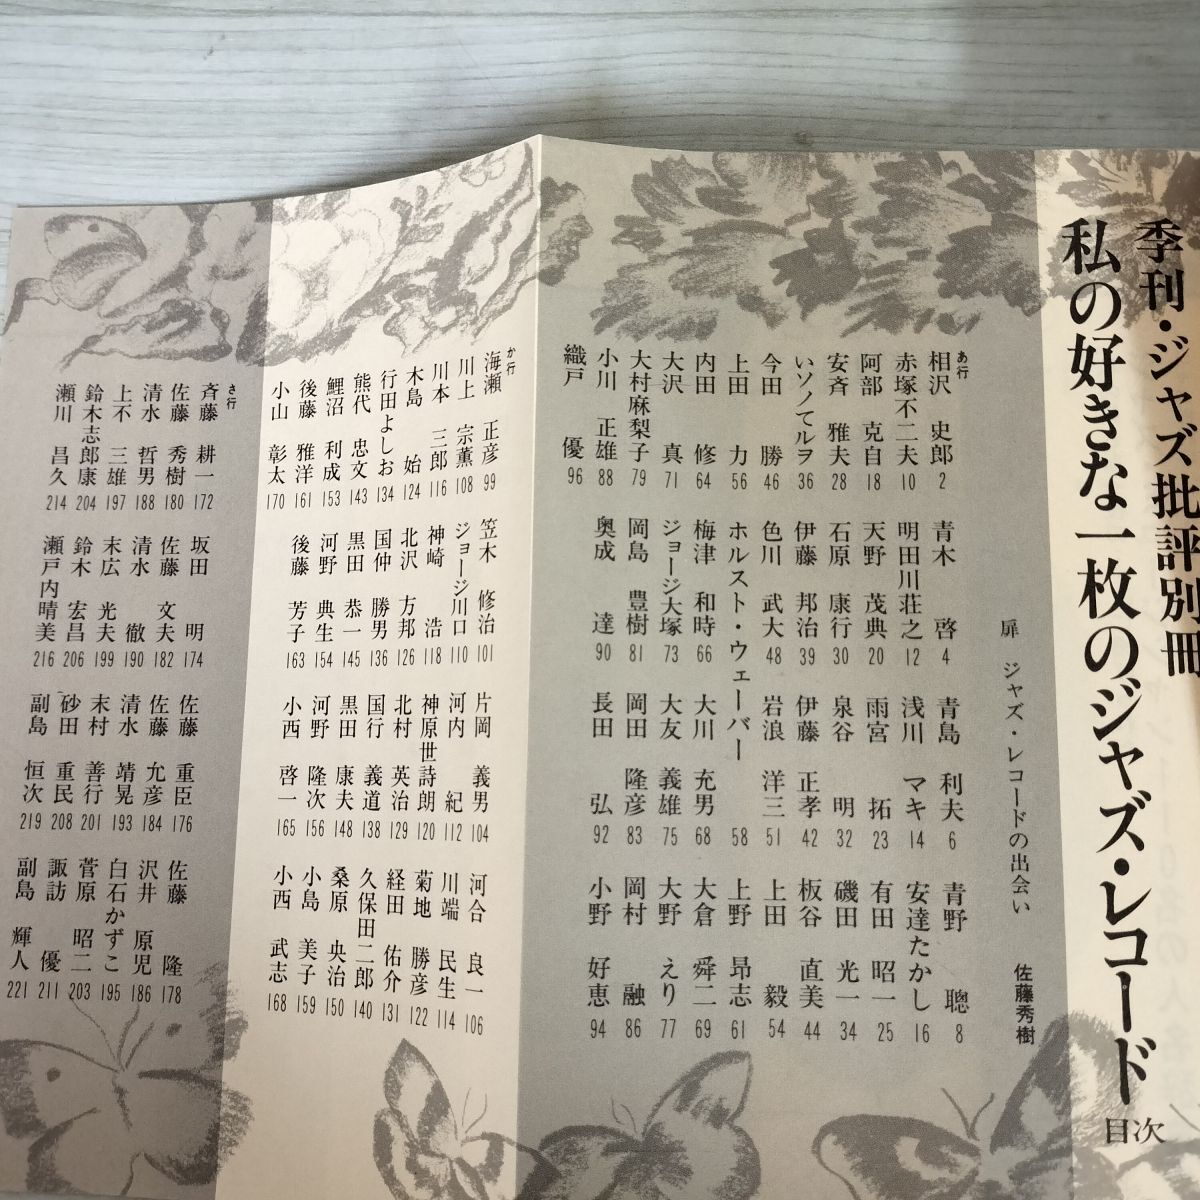 季刊・ジャズ批評別冊
私の好きな一枚のジャズ・レコード
目次
扉 ジャズ・レコードの出会い 佐藤秀樹
あ行
相沢 史郎 2 青木 啓 4 青島 利夫 6 青野 聰 8
赤塚不二夫 10 明田川荘之 12 浅川 マキ 14 安達たかし 16
阿部 克自 18 天野 茂典 20 雨宮 拓 23 有田 昭一 25
安斉 雅夫 28 石原 康行 30 泉谷 明 32 磯田 光一 34
いソノてルヲ 36 伊藤 邦治 39 伊藤 正孝 42 板谷 直美 44
今田 勝 46 色川 武大 48 岩浪 洋三 51 上田 毅 54
上田 力 56 ホルスト・ウェーバー 58 上野 昂志 61
内田 修 64 梅津 和時 66 大川 充男 68 大倉 舜二 69
大沢 真 71 ジョージ大塚 73 大友 義雄 75 大野 えり 77
大村麻梨子 79 岡島 豊樹 81 岡田 隆彦 83 岡村 融 86
小川 正雄 88 奥成 達 90 長田 弘 92 小野 好恵 94
織戸 優 96
か行
海瀬 正彦 99 笠木 修治 101 片岡 義男 104 河合 良一 106
川上 宗薫 108 ジョージ川口 110 河内 紀 112 川端 民生 114
川本 三郎 116 神崎 浩 118 神原世詩朗 120 菊地 勝彦 122
木島 始 124 北沢 方邦 126 北村 英治 129 経田 佑介 131
行田よしお 134 国仲 勝男 136 国行 義道 138 久保田二郎 140
熊代 忠文 143 黒田 恭一 145 黒田 康夫 148 桑原 央治 150
鯉沼 利成 153 河野 典生 154 河野 隆次 156 小島 美子 159
後藤 雅洋 161 後藤 芳子 163 小西 啓一 165 小西 武志 168
小山 彰太 170
さ行
斉藤 耕一 172 坂田 明 174 佐藤 重臣 176 佐藤 隆 178
佐藤 秀樹 180 佐藤 文夫 182 佐藤 允彦 184 沢井 原児 186
清水 哲男 188 清水 徹 190 清水 靖晃 193 白石かずこ 195
上不 三雄 197 末広 光夫 199 末村 善行 201 菅原 昭二 203
鈴木志郎康 204 鈴木 宏昌 206 砂田 重民 208 諏訪 優 211
瀬川 昌久 214 瀬戸内晴美 216 副島 恒次 219 副島 輝人 221